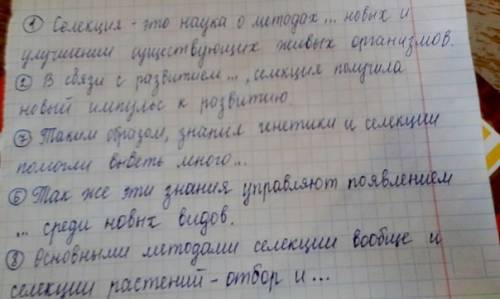 ① Селекция - это наука о методах ... новых и
улучшении существующих живых организмов.
② В связи с развитием ..., селкция получила
новый импульс к развитию.
⑦ Таким образом, знания генетики и селекции
помогли выветь много...
⑥ Так же эти знания управляют появлением
... среди новых видов.
③ Основными методами селекции вообще и
селекции растений - отбор и ...